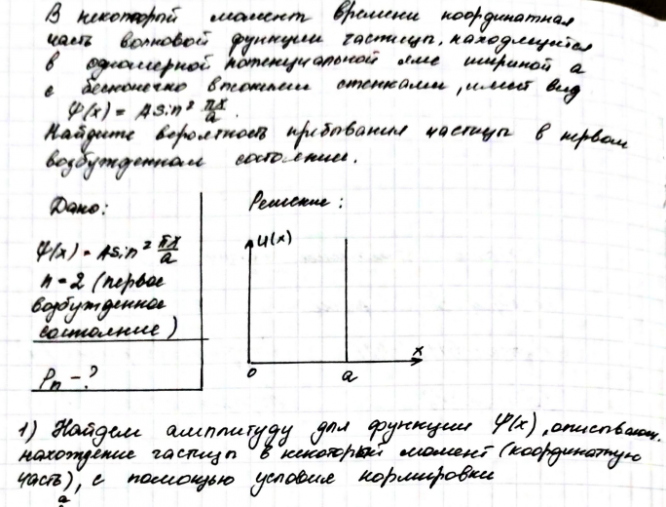 В некоторый момент времени координатная
часть волновой функции частицы, находящейся
в одномерной потенциальной яме шириной a
с бесконечно высокими стенками, имеет вид
Ψ(x) = A sin² πx/a.
Найдите вероятность прибывания частицы в первом
возбужденном состоянии.
Дано:
Ψ(x) = A sin² πx/a
n = 2 (первое
возбужденное
состояние)
Pn - ?
Решение:
U(x)
x
0
a
1) Найдем амплитуду для функции Ψ(x), описывающ.
нахождение частицы в некоторый момент (координатную
часть), с помощью условия нормировки
a